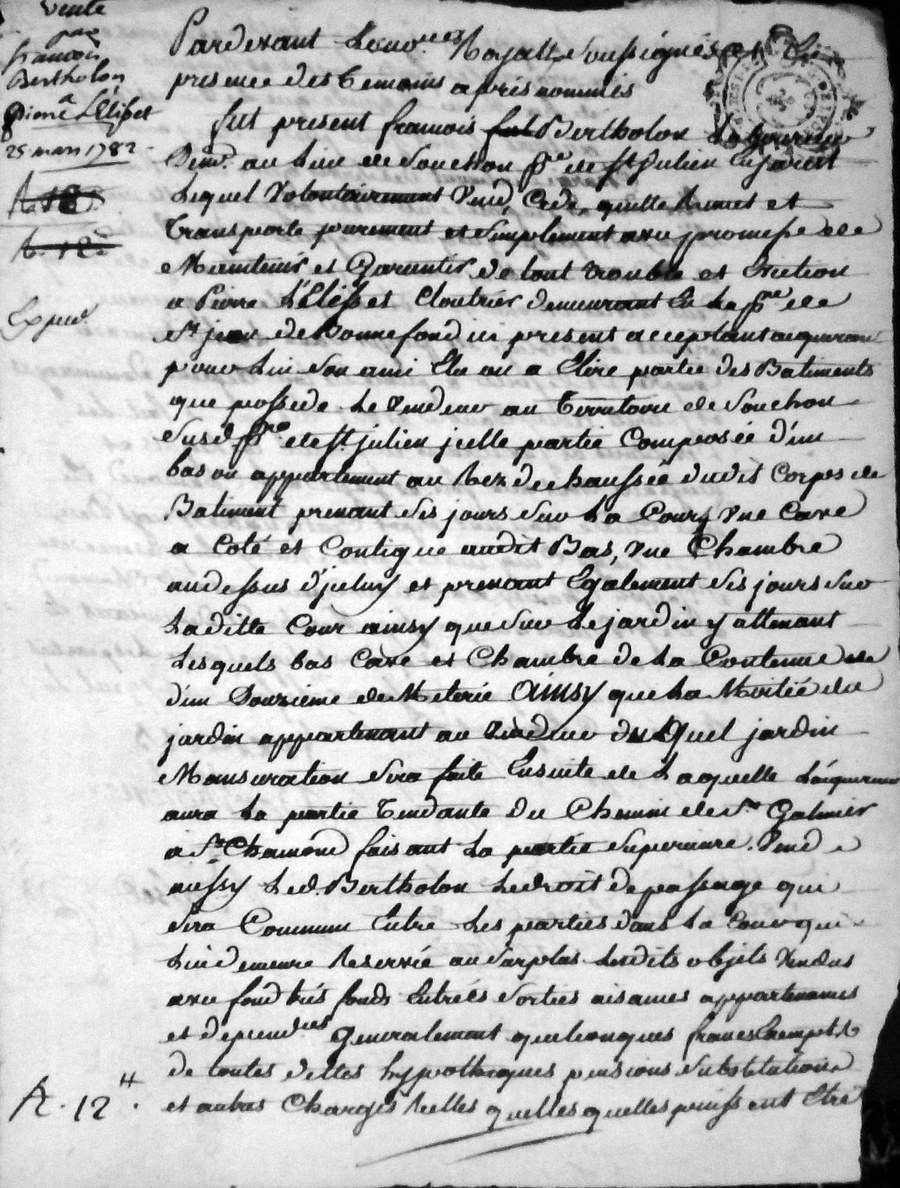 vente
par
françois
Bertholon
a
pierre Lélisset
25 mars 1782
Exped
Pardevant Les no.res Royaux Soussignés et En
presence des temoins après nommés
fut present françois Bertholon
Dem.t au Lieu de Souchon p.sse de St Julien En Jarret
Lequel Volontairement Vend, Cede, quitte Remet et
Transporte purement et simplement avec promesse de
Maintenir et Garantir de tout trouble et Eviction
a Pierre Léliss et Cloutier demeurant En La p.sse de
St jean de Bonnefond ici present acceptant acquerant
pour Lui Son ami Elu ou a Elire partie des Batiments
que possede Le Vendeur au Territoire de Souchon
Susd. p.sse de St. julien jcelle partie Composée d'un
bas ou appartement au Rez de chaussée dudit Corps de
Batiment prenant Ses jours Sur La Cour, Une Cave
a Coté et Contigue audit Bas, Une Chambre
audessus d'jceluy et prenant Egalement Ses jours Sur
Laditte Cour ainsy que Sur Le jardin y attenant
Lesquels bas Cave et Chambre de La Contenue de
d'un Douzieme de Meterée Ainsy que La Moitié du
jardin appartenant au Vendeur duquel jardin
Mansuration Sera faite Ensuite de Laquelle L'acquereur
aura La partie Tendante du Chemin de St Galmier
a St Chamond faisant La partie Superieure. Vend
aussy Led. Bertholon Le droit de passage qui
Sera Commun Entre Les parties dans La Cour qui
Lui demeure Reservée au Surplus Lesdits objets Vendus
avec fond tres fonds Entrées Sorties aisances appartenances
et depend.ces Generalement quelconques francs Exempts
de toutes dettes hypotheques pensions Substitutions
et autres Charges Reelles quelles quelles puissent Etre
R. 12 ₶.